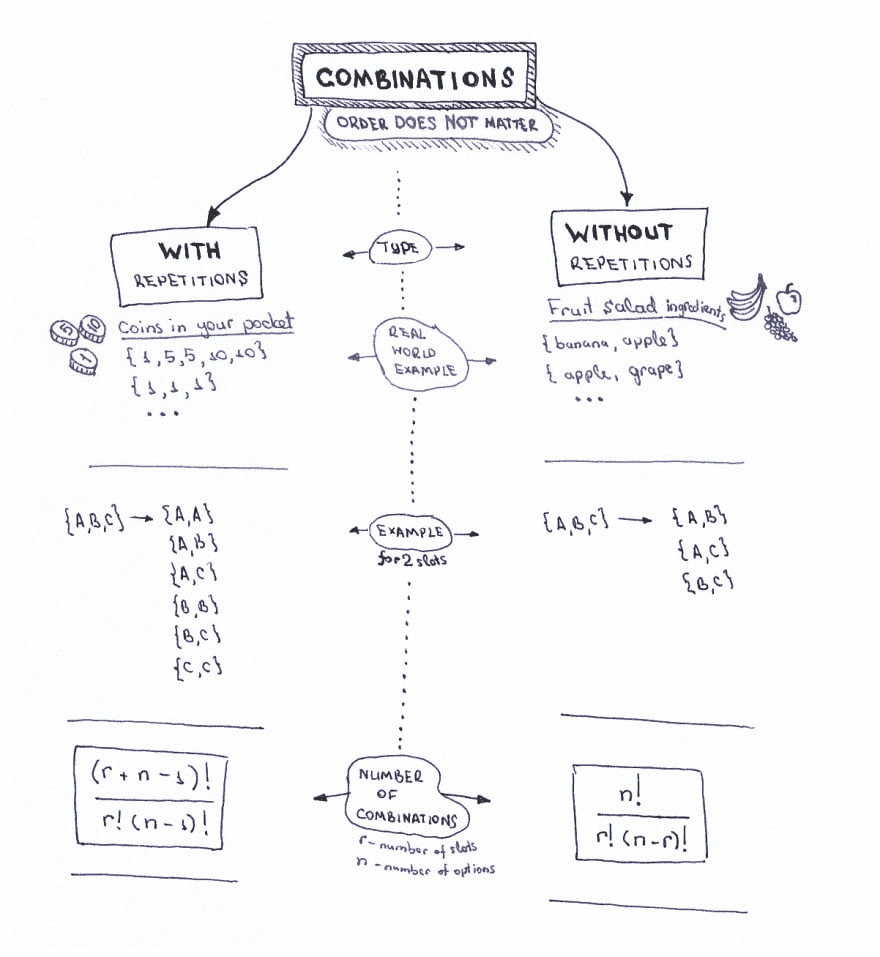 COMBINATIONS
ORDER DOES NOT MATTER
WITH
REPETITIONS
TYPE
WITHOUT
REPETITIONS
Coins in your pocket
5
10
1
{1,5,5,10,10}
{1,1,1}
...
REAL
WORLD
EXAMPLE
Fruit salad ingredients
{banana, apple}
{apple, grape}
...
{A,B,C} → {A,A}
{A,B}
{A,C}
{B,B}
{B,C}
{C,C}
EXAMPLE
for 2 slots
{A,B,C} → {A,B}
{A,C}
{B,C}
(r + n - 1)!
r! (n - 1)!
NUMBER
OF
COMBINATIONS
r - number of slots
n - number of options
n!
r! (n-r)!